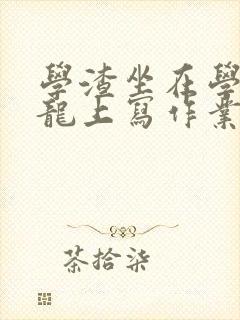 學渣坐在學
龍上寫作業
茶拾柒